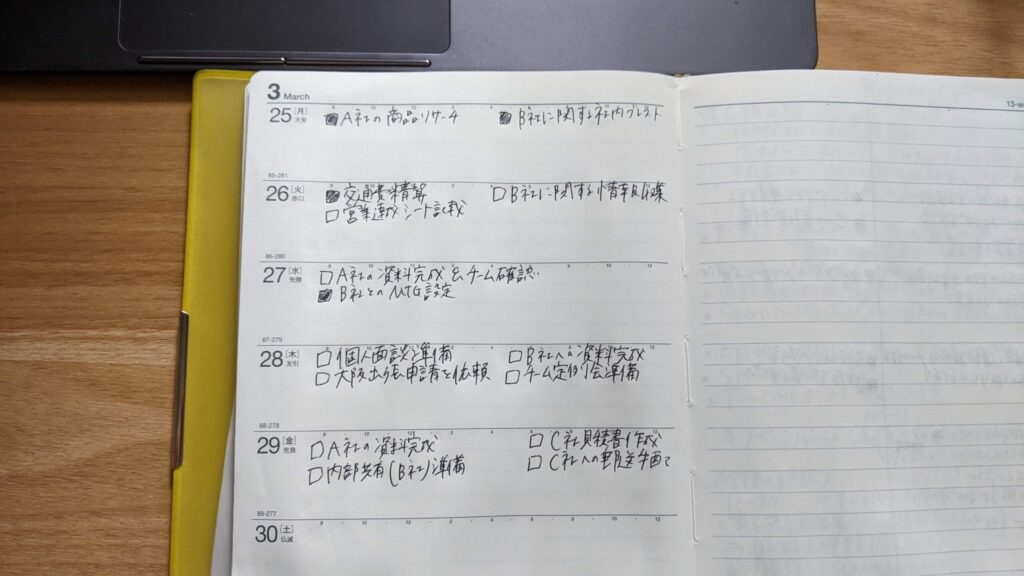 3 March
25 [月] 大安
A社の商品リサーチ B社に関する社内ブレスト
85-281
26 [火] 赤口
交通費精算 B社に関する情報収集
営業達成シート記載
86-280
27 [水] 先勝
A社の資料完成&チーム確認
B社とのMTG設定
87-279
28 [木] 友引
個人面談準備 B社への資料完成
大阪出張申請を依頼 チーム定例会準備
88-278
29 [金] 先負
A社の資料完成 C社見積書作成
内部共有(B社)準備 C社への郵送
89-277
8 10 12 2 4 6 8 10 12
30 [土] 仏滅
13-w